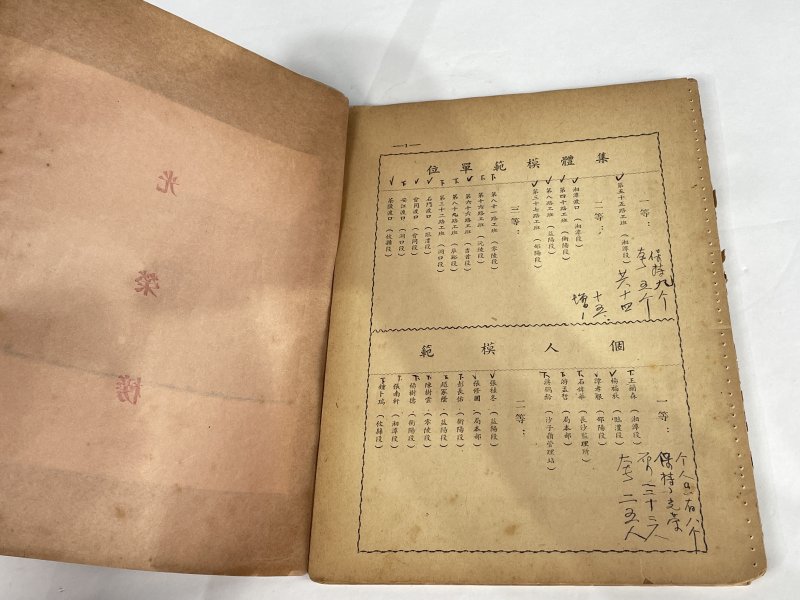 光榮榜
—1—
集體模範單位
一等：
第五十五路工班（湘潭段）
二等：
湘潭渡口（湘潭段）
第四十路工班（衡陽段）
第八路工班（益陽段）
第三十七路工班（邵陽段）
三等：
第八十一路工班（零陵段）
第十六路工班（沅陵段）
第六十六路工班（吉首段）
第八十九路工班
第三十二路工班（洞口段）
石門渡口（臨澧段）
會同渡口（會同段）
安江渡口（洞口段）
茶陵渡口（攸縣段）
保持九个
五个
共十四
十五
增1
個人模範
一等：
王菊森（湘潭段）
楊楊欽（臨澧段）
譚孝敬（邵陽段）
石偉華（長沙監理所）
游孟哲（局本部）
蔣鶴齡
二等：
張桂冬（益陽段）
張修國（局本部）
彭長佑（衡陽段）
趙家隆（益陽段）
陳樹雲（零陵段）
楊樹德（衡陽段）
張南軒（湘潭段）
鍾卜瑞（攸縣段）
个人只有八个
保持了光榮
二五人